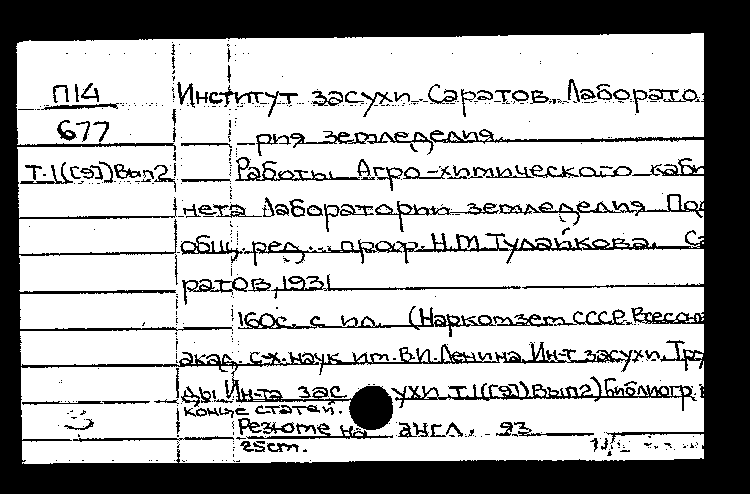 П14
677
Т.1((9)) Вып2
Институт засухи. Саратов. Лаборато
рия земледелия.
Работы Агро-химического каби
нета Лаборатории земледелия. Под
общ. ред... проф. Н.М. Тулайкова. Са
ратов, 1931
160с. с ил. (Наркомзем СССР. Всесоюз
акад. с-х. наук им. В.И. Ленина. Ин-т засухи. Тру
ды Ин-та засухи Т.1((9)) Вып2) Библиогр. в
конце статей.
Резюме на англ. яз
25cm.